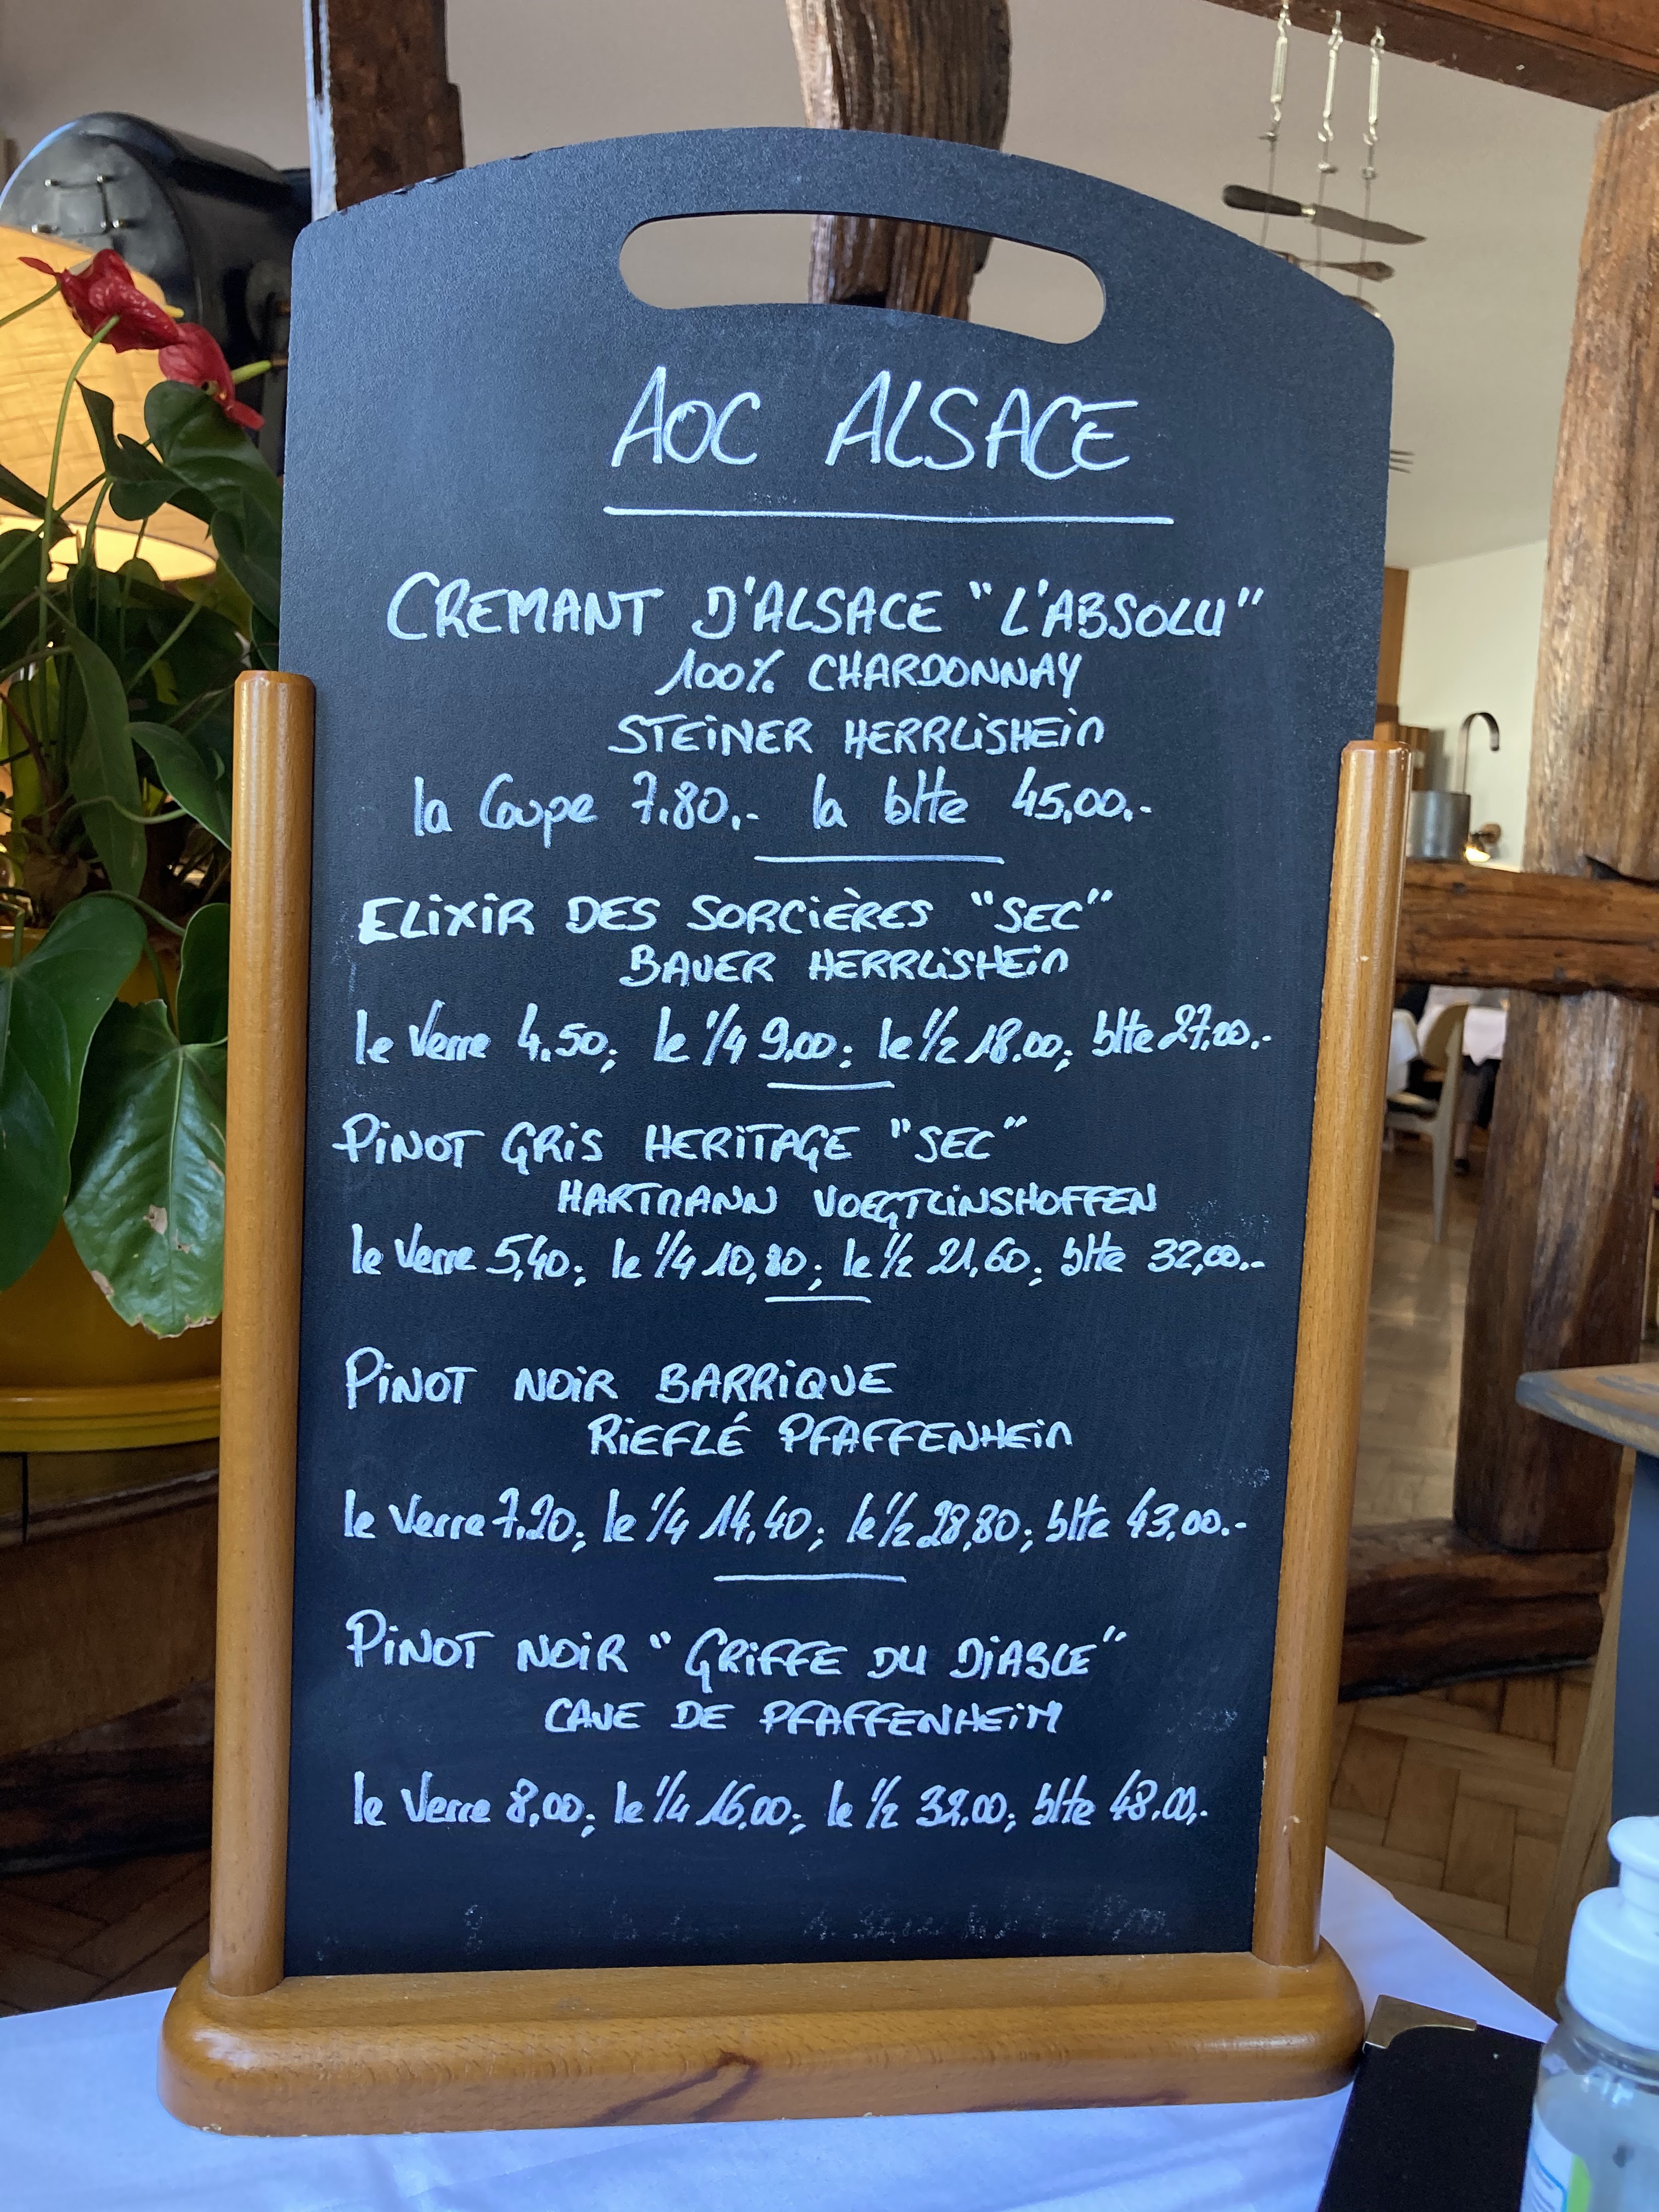 AOC ALSACE
CREMANT D'ALSACE "L'ABSOLU"
100% CHARDONNAY
STEINER HERRLISHEIM
la Coupe 7.80.- la blte 45,00.-
ELIXIR DES SORCIÈRES "SEC"
BAUER HERRLISHEIM
le Verre 4.50; le 1/4 9,00; le 1/2 18.00; blte 27,00.-
PINOT GRIS HERITAGE "SEC"
HARTMANN VOEGTLINSHOFFEN
le Verre 5,40; le 1/4 10,80; le 1/2 21,60; blte 32,00.-
PINOT NOIR BARRIQUE
RIEFLÉ PFAFFENHEIM
le Verre 7,20; le 1/4 14,40; le 1/2 28,80; blte 43,00.-
PINOT NOIR "GRIFFE DU DIABLE"
CAVE DE PFAFFENHEIM
le Verre 8,00; le 1/4 16,00; le 1/2 32.00; blte 48.00,-